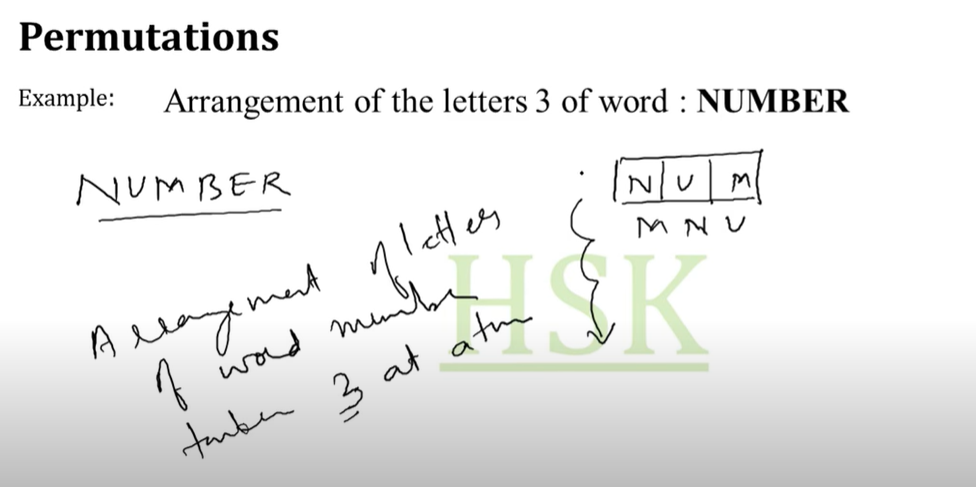 Permutations
Example: Arrangement of the letters 3 of word : NUMBER
NUMBER
N U M
M N U
Arrangement of letters
of word number
taken 3 at a time
HSK